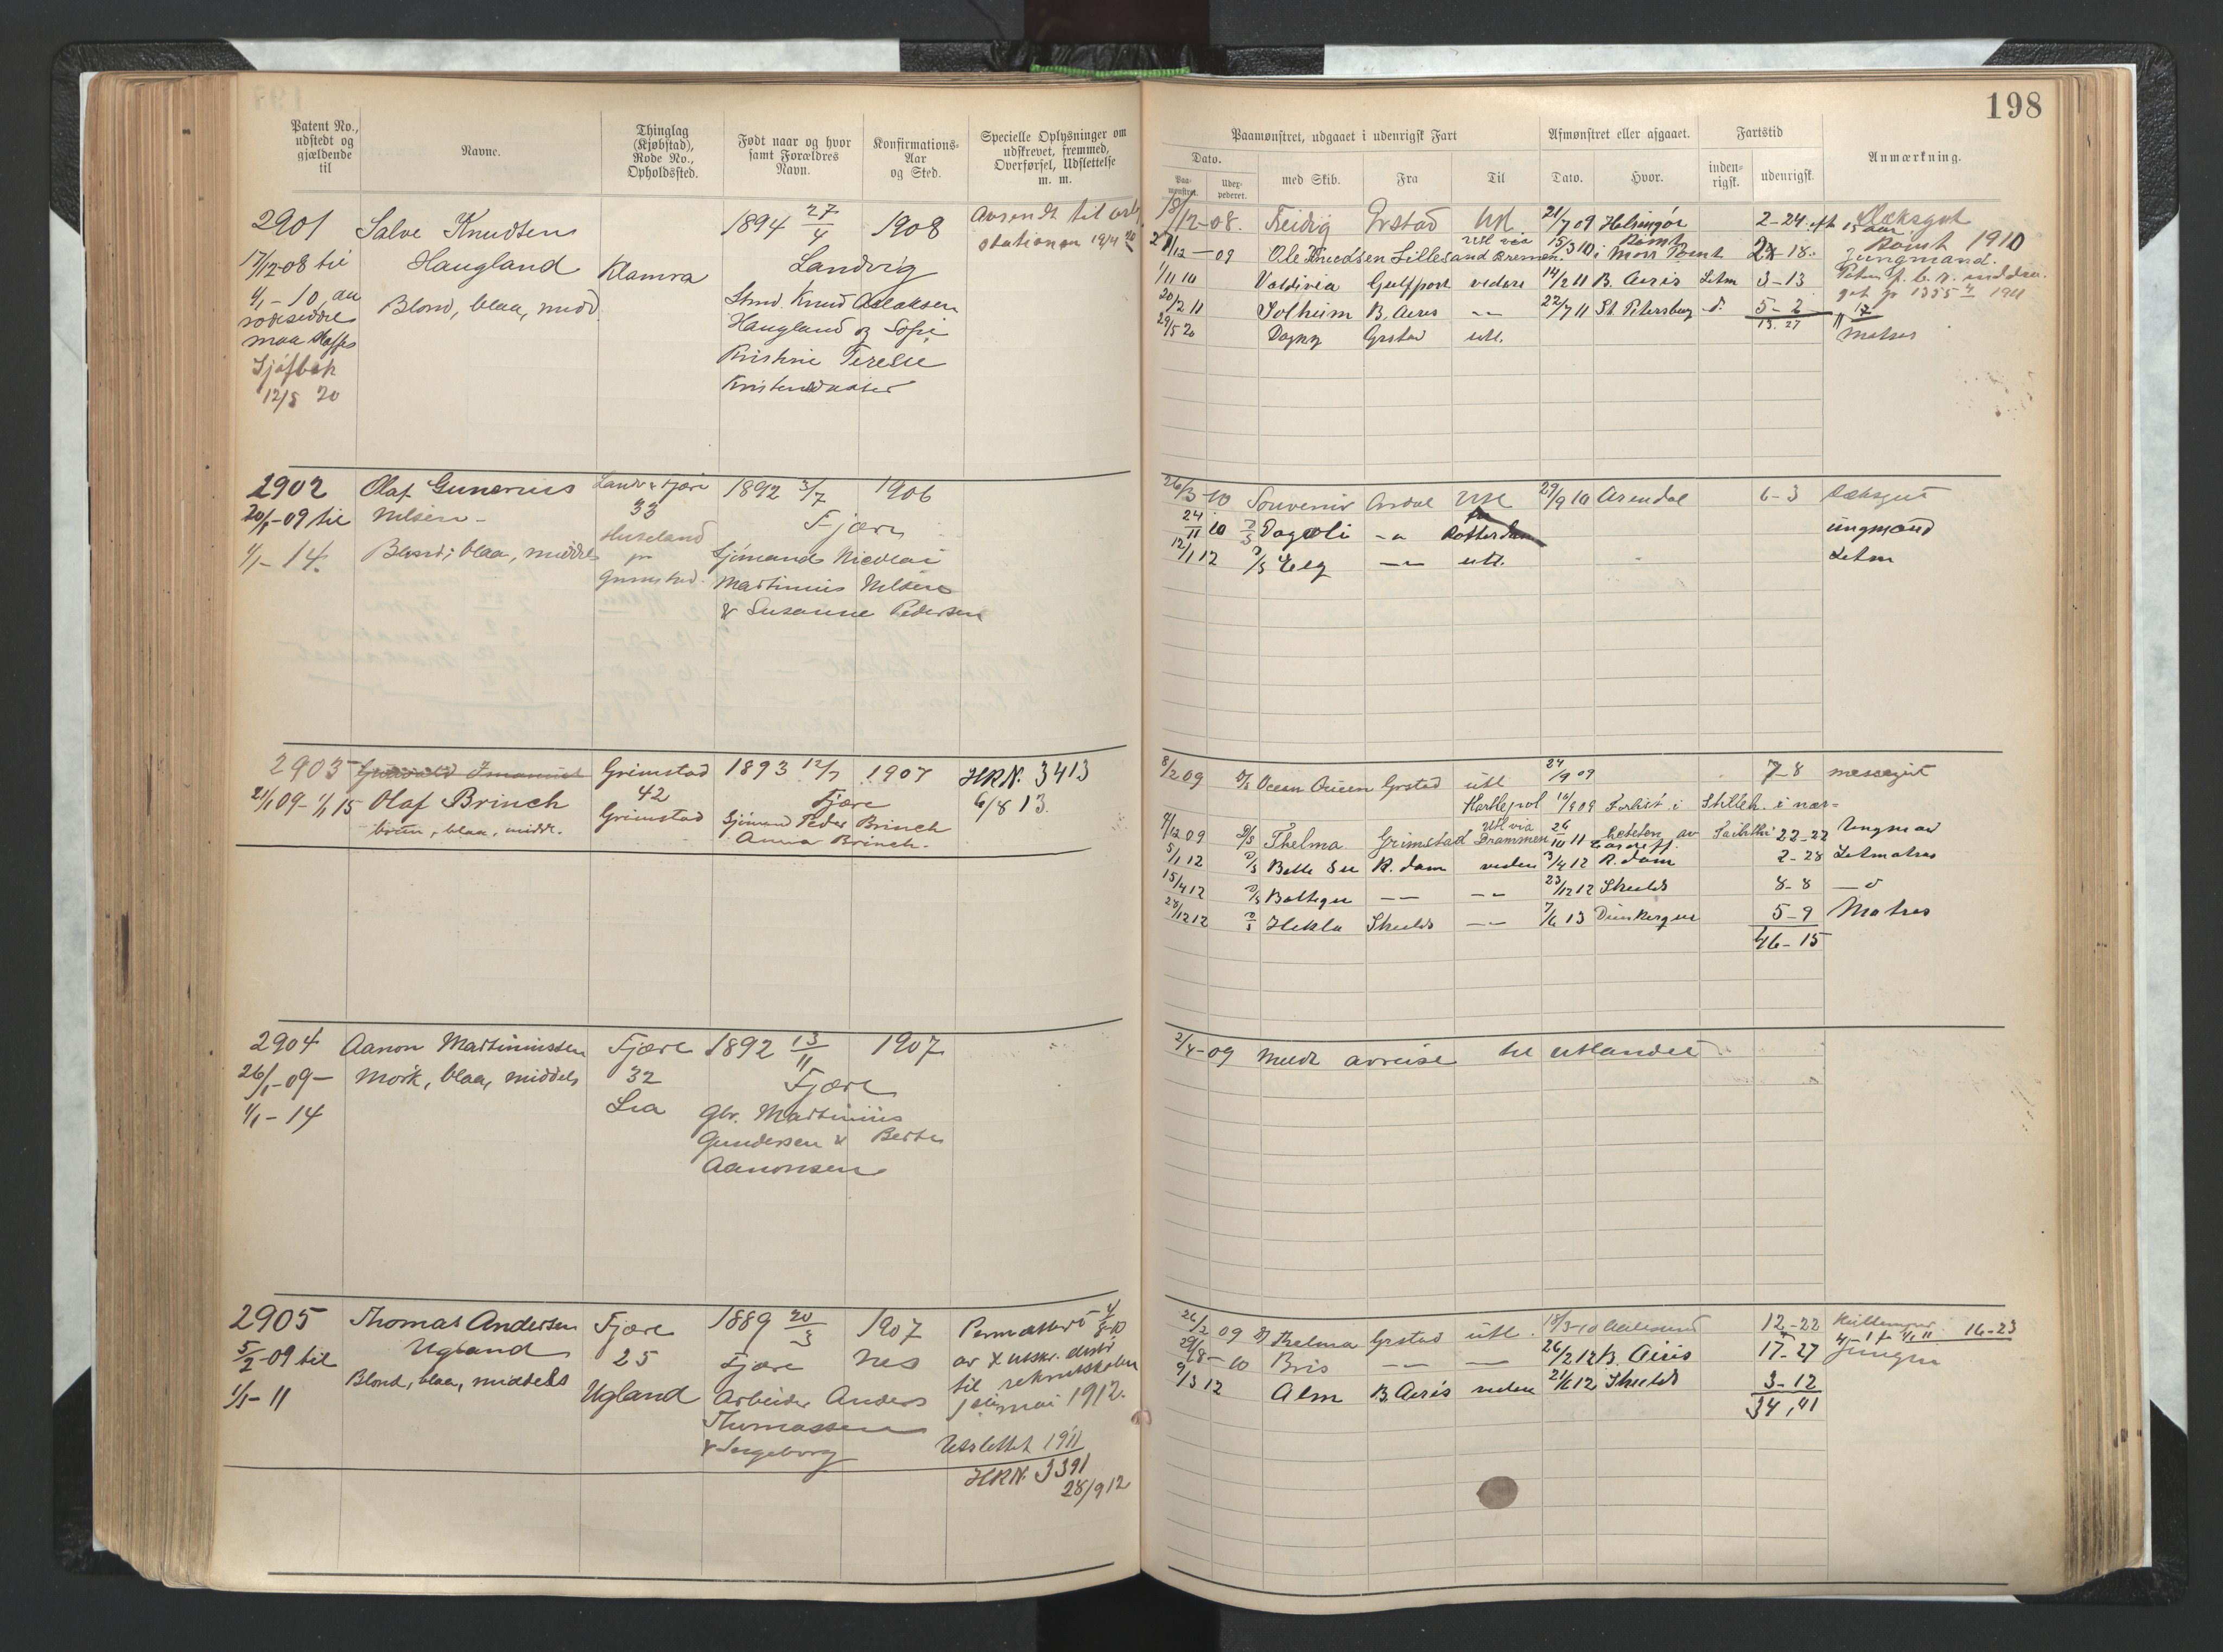 198
Patent No., udstedt og gjældende til
Navne.
Thinglag (Kjøbstad), Rode No., Opholdssted.
Født naar og hvor samt Forældres Navn.
Konfirmations-Aar og Sted.
Specielle Oplysninger om udskrevet, fremmed, Overførsel, Udslettelse m. m.
Paamønstret, udgaaet i udenrigsk Fart
Afmønstret eller afgaaet.
Fartstid
Anmærkning.
Dato.
Paa-mønstret.
Udex-pederet.
med Skib.
Fra
Til
Dato.
Hvor.
inden-rigsk.
udenrigsk.
2901 Salve Knudsen 1894 27/4 1908
17/12-08 til Haugland Klamra Landvig
1/1-10, Blond, blaa, midd. Knud Aslaksen
Haugland og Sofie
Kristine Terese
Sjøfbok
12/5 20
18/12-08. Freidig Grstad Utl. 21/7 09 Helsingør 2-24 Dæksgut
-09 Ole Knudsen Lillesand Bremen 15/3 10 18 Jungmand.
1/11 10 Valdivia Gulfport videre 14/2 11 B. Aires Letm 3-13
20/2 11 Solheim B. Aires -- 22/7 11 St. Petersburg 5-2
13.27
29/5 20 Dagny Grstad utl. Matros
2902 Olaf Gunerius Landv. Fjære 1892 3/7 1906
20/1-09 til Nilsen- 33 Fjære
1/1-14. Blond, blaa, middels Huseland Sjømand Nicolai
pr Grimstad. Martinius Nilsen
& Susanne Pedersen
26/3-10 Souvenir Ardal Utl 29/9 10 Arendal 6-3 Dæksgut
24/11 10 D/S Dagali -"- Rotterdam ungmand
12/1 12 D/S Elg -"- utl. Letm
2903 Grimstad 1893 12/7 1907 HRN. 3413
21/1 09-1/1 15 Olaf Brinch 42 Fjære 6/8 13.
brun, blaa, midd. Grimstad Sjømand Peder Brinch
Anna Brinch.
8/2 09 D/S Ocean Queen Grstad utl 24/9 09 7-8 messegut
Hartlepol Forlist i
7/12 09 D/S Thelma Grimstad Utl via Drammen 26/10 11 Cardiff. 22-22 Ungmand
5/1 12 D/S Belle R.dam videre 3/4 12 R.dam 2-28 Letmatros
15/4 12 D/S -- -- 23/12 12 Shields 8-8 -"-
24/12 12 D/S Hekla Shields -- 7/6 13 Dunkerque 5-9 Matros
46-15
2904 Aanon Martiniussen Fjære 1892 13/11 1907
26/1-09- Mørk, blaa, middels 32 Fjære
1/1-14 Lia Gbr. Martinius
Gundersen & Berte
Aanonsen
2/4-09 Meldt avreise til utlandet
2905 Thomas Andersen Fjære 1889 20/3 1907
5/2-09 til Ugland 25 Fjære Nes
1/1-11 Blond, blaa, middels Ugland Arbeider Anders
Thomassen
& Ingeborg
til rekrutskolen
mai 1912.
Utslettet 1911
HRN. 3391
28/9 12
26/2 09 Thelma Grstad utl. 18/3-10 Aalesund 12-22 16-23
29/8-10 Bris -- -- 26/2 12 B. Aires 17-27
9/3 12 Alm B. Aires videre 21/6 12 Shields 3-12
34,01